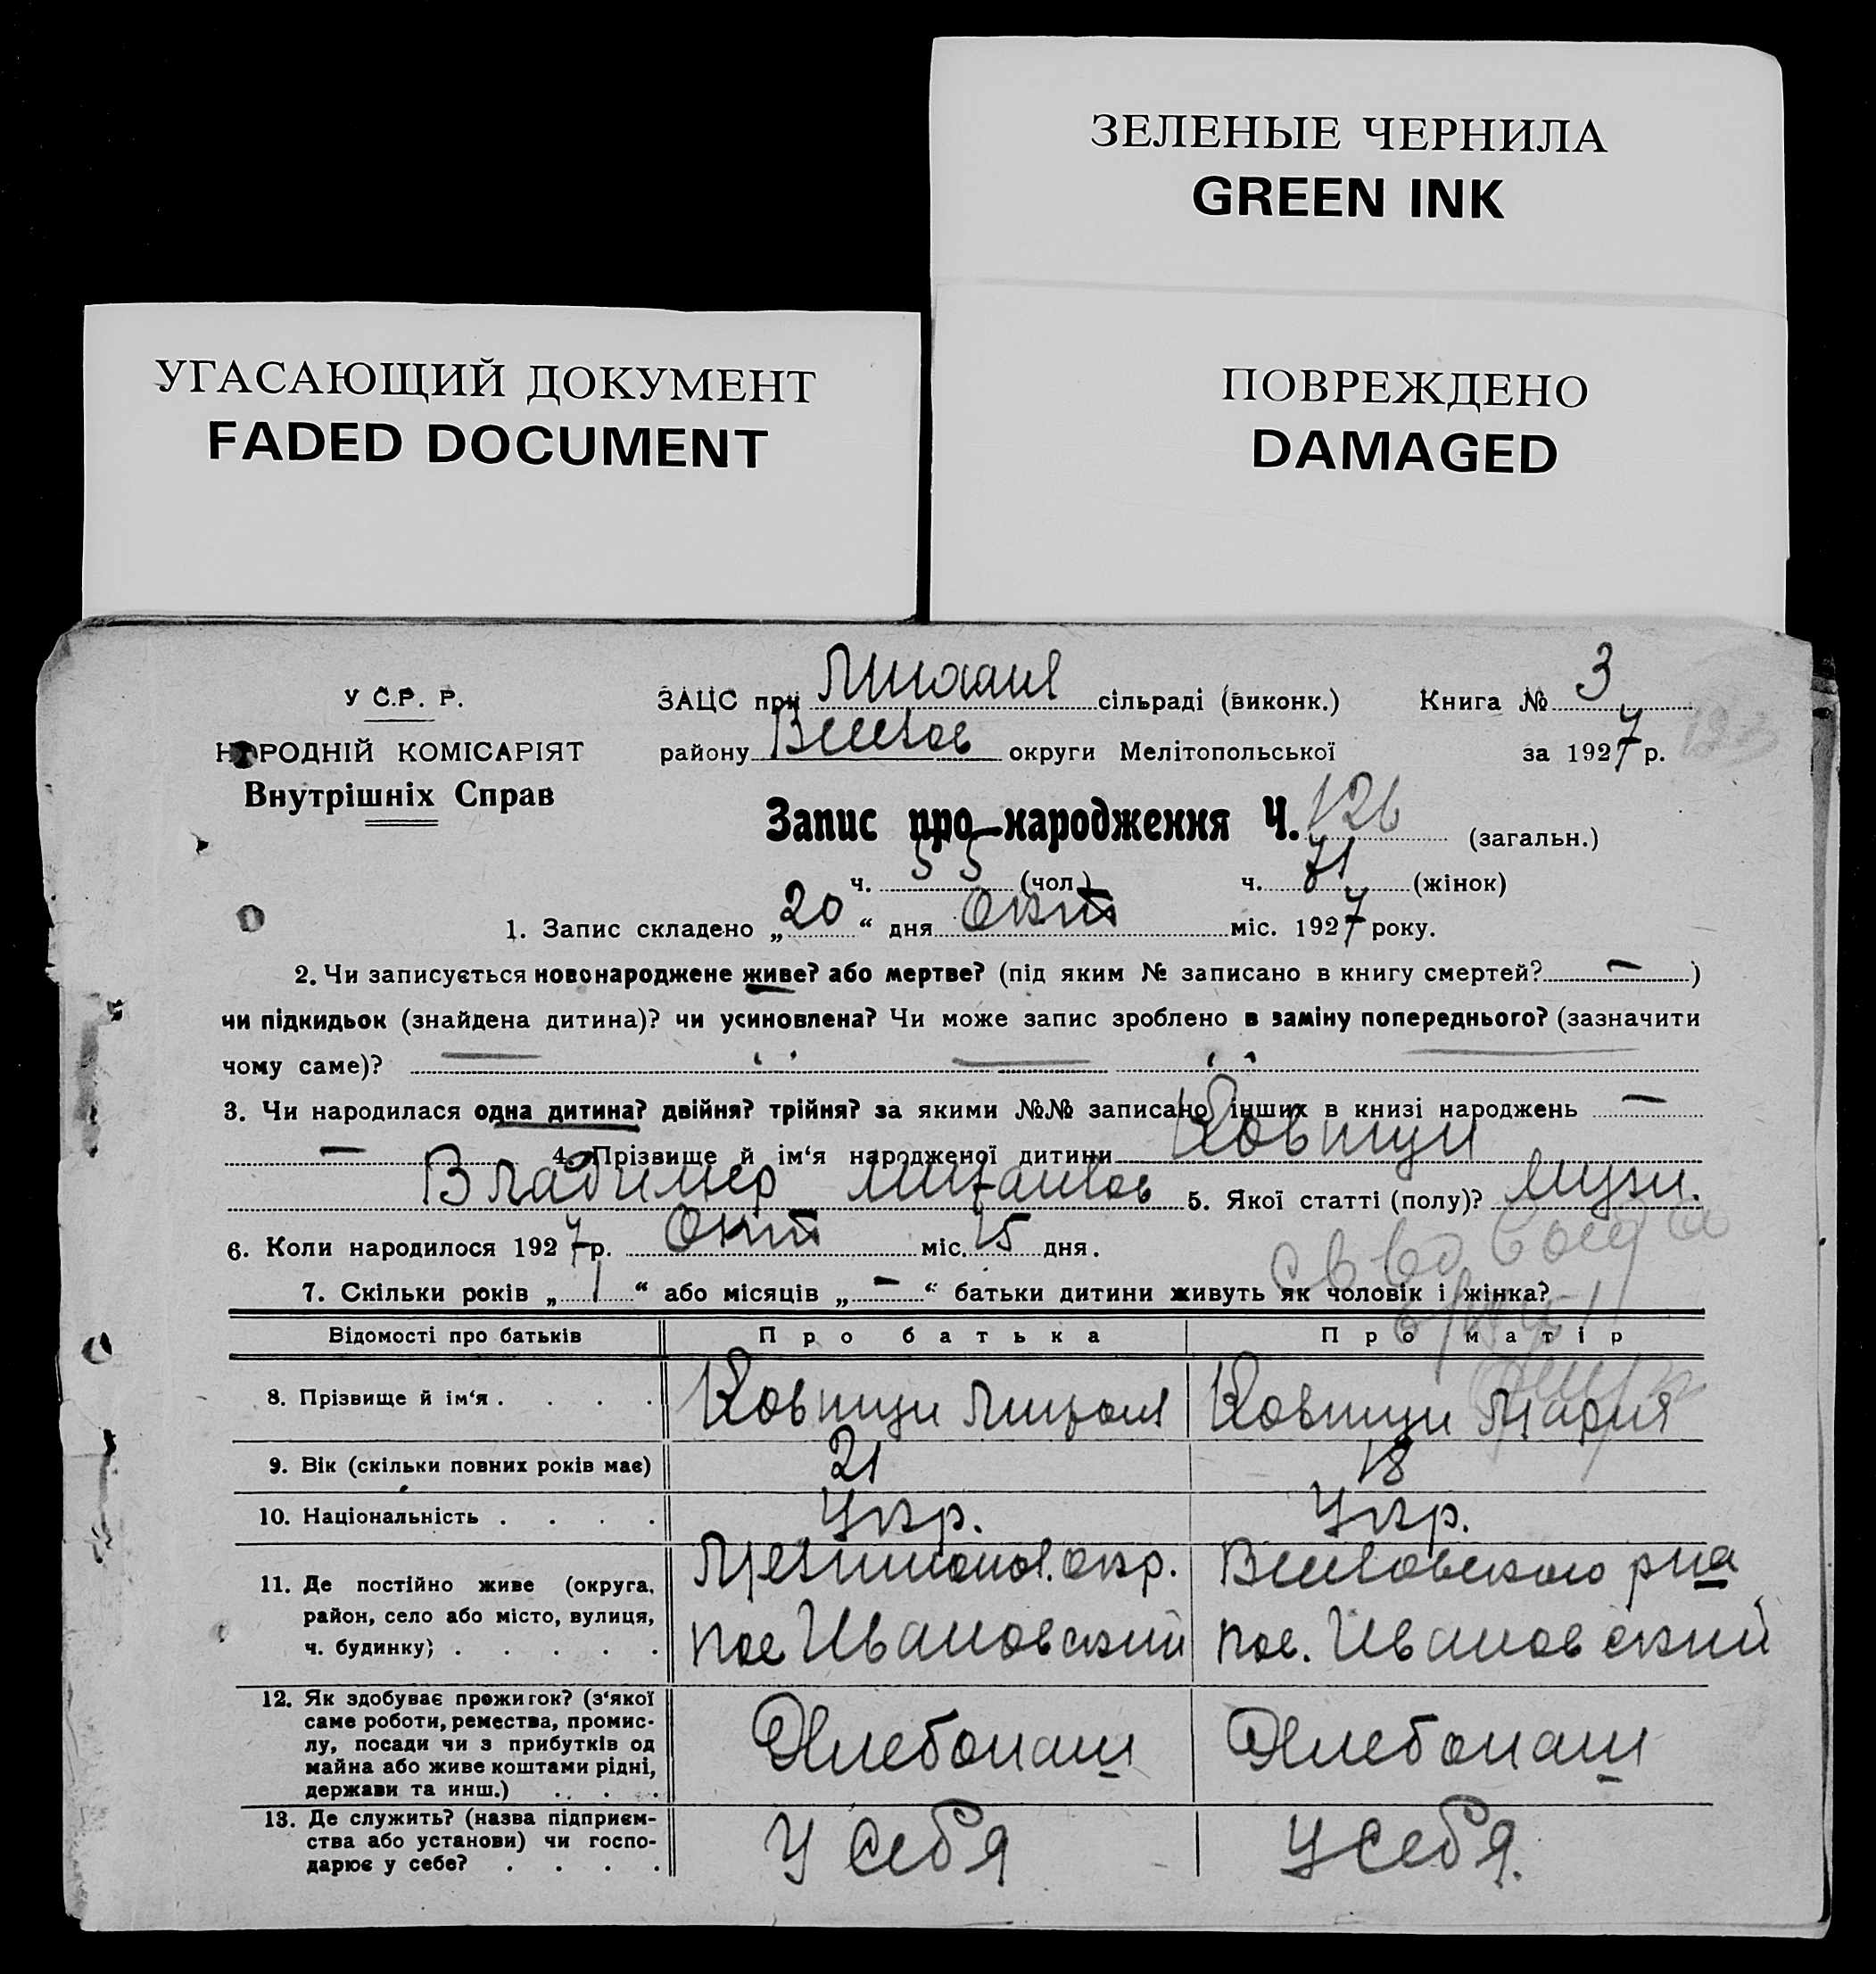 ЗЕЛЕНЫЕ ЧЕРНИЛА
GREEN INK
УГАСАЮЩИЙ ДОКУМЕНТ
FADED DOCUMENT
ПОВРЕЖДЕНО
DAMAGED
У С.Р. Р.
НАРОДНІЙ КОМІСАРІЯТ
Внутрішніх Справ
ЗАЦС при сільраді (виконк.) Книга № 3
району округи Мелітопольської за 1927 р.
Запис про народження Ч. 126 (загальн.)
ч. 55 (чол.) ч. 71 (жінок)
1. Запис складено „20“ дня Окт міс. 1927 року.
2. Чи записується новонароджене живе? або мертве? (під яким № записано в книгу смертей? — )
чи підкидьок (знайдена дитина)? чи усиновлена? Чи може запис зроблено в заміну попереднього? (зазначити
чому саме)?
3. Чи народилася одна дитина? двійня? трійня? за якими №№ записано інших в книзі народжень —
— 4. Прізвище й ім‘я народженої дитини
Владимер 5. Якої статті (полу)? Мужн.
6. Коли народилося 1927 р. Окт міс. 15 дня.
7. Скільки років „1“ або місяців „—“ батьки дитини живуть як чоловік і жінка?
Відомості про батьків Про батька Про матір
8. Прізвище й ім‘я . . . . Мария
9. Вік (скільки повних років має) 21 18
10. Національність . . . . Укр. Укр.
11. Де постійно живе (округа, окр. рна
район, село або місто, вулиця,
ч. будинку) . . . . . пос Ивановский пос. Ивановский
12. Як здобуває прожиток? (з‘якої
саме роботи, ремества, промис-
лу, посади чи з прибутків од Хлебопаш Хлебопаш
майна або живе коштами рідні,
держави та инш.) . . . .
13. Де служить? (назва підприєм-
ства або установи) чи госпо- У себя У себя.
дарює у себе? . . . .